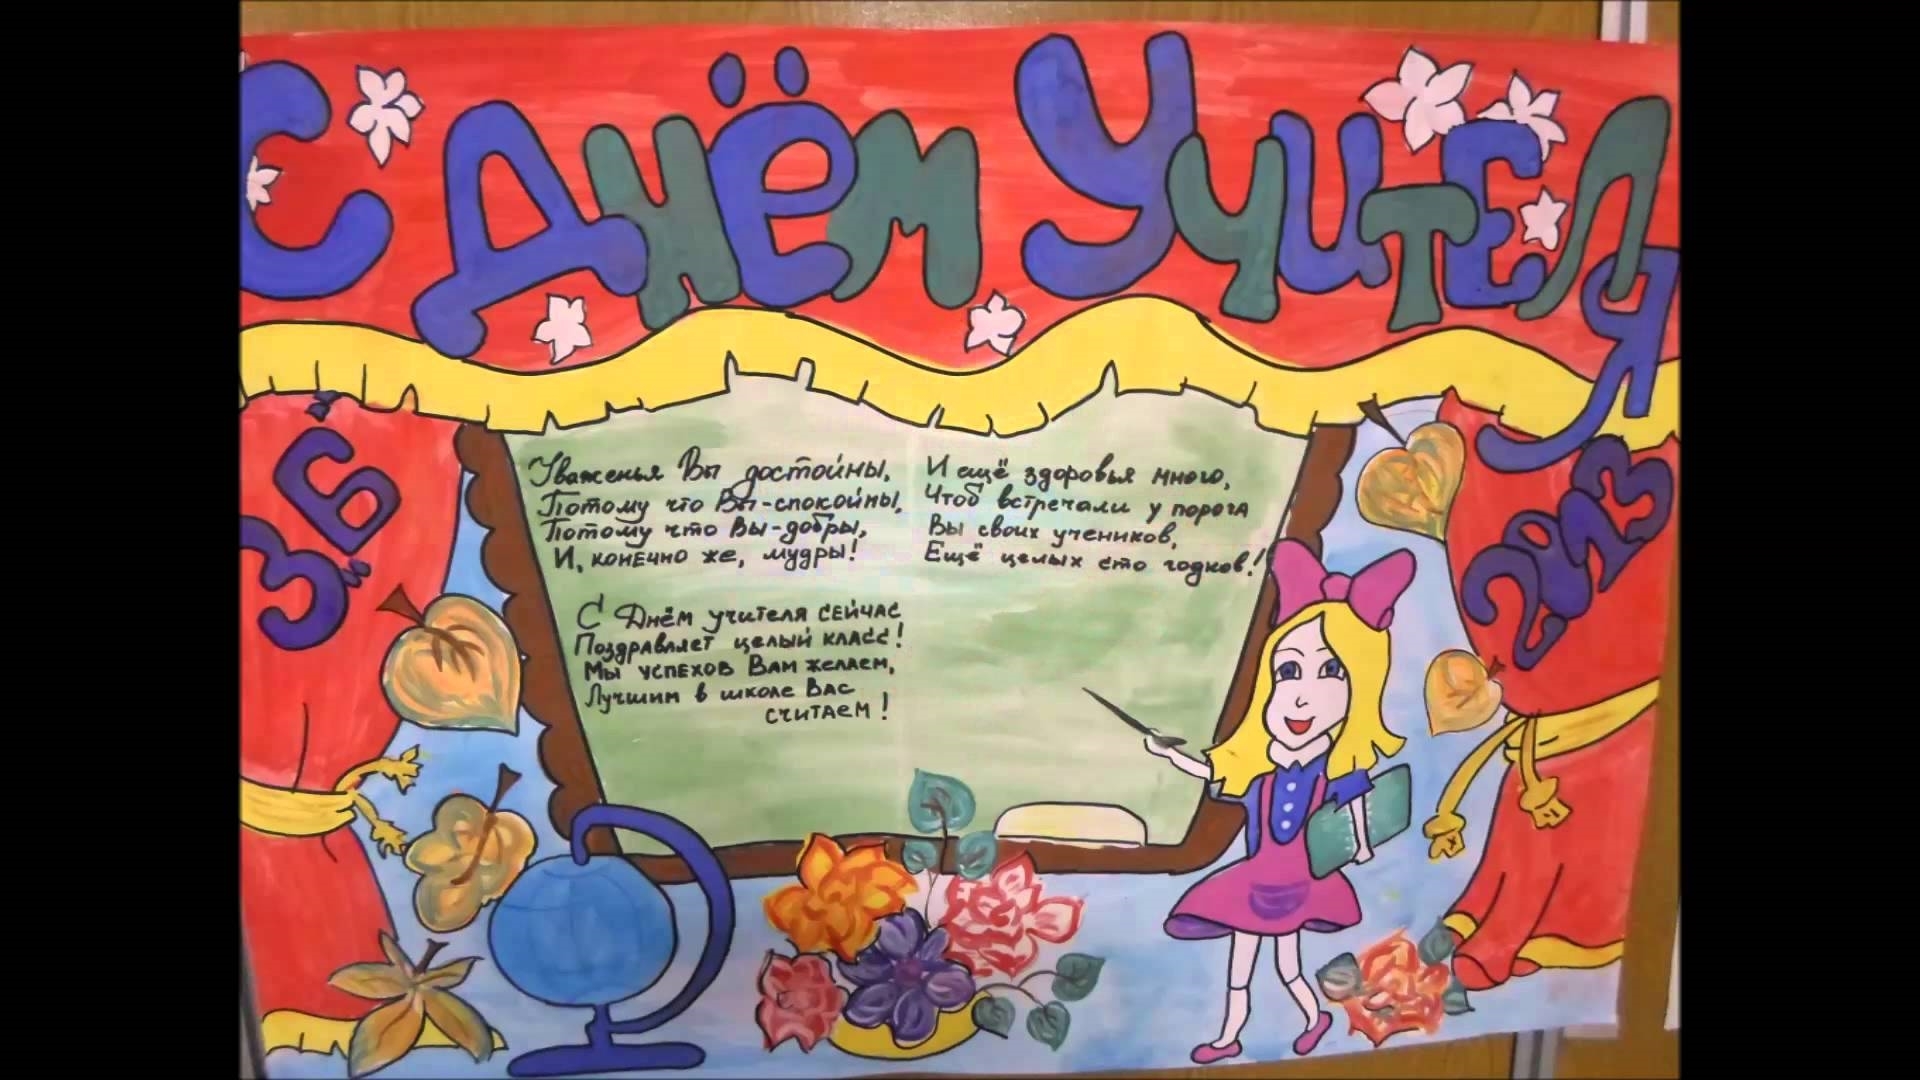 С Днём Учителя
3 "Б"
2013
Уваженья Вы достойны,
Потому что Вы-спокойны,
Потому что Вы-добры,
И, конечно же, мудры!
С Днём учителя сейчас
Поздравляет целый класс!
Мы успехов Вам желаем,
Лучшим в школе Вас
считаем!
И ещё здоровья много,
Чтоб встречали у порога
Вы своих учеников,
Ещё целых сто годков!